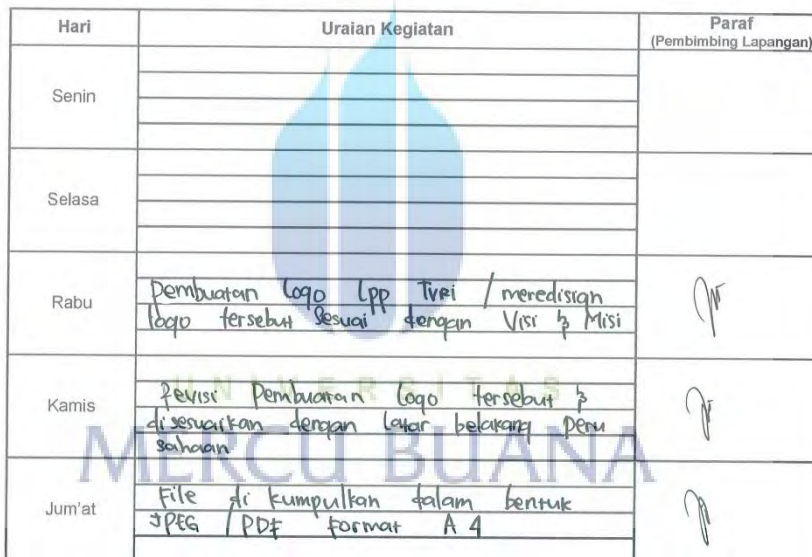 Hari Uraian Kegiatan Paraf
(Pembimbing Lapangan)
Senin
Selasa
Rabu
pembuatan logo LPP TVRI / meredisign
logo tersebut sesuai dengan Visi & Misi
Kamis
Revisi Pembuatan logo tersebut &
disesuaikan dengan latar belakang peru
sahaan
UNIVERSITAS
MERCU BUANA
Jum'at
File di kumpulkan dalam bentuk
JPEG / PDF format A4